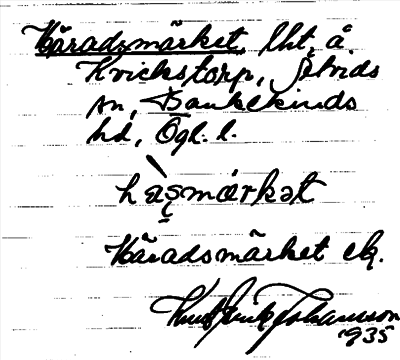 Häradsmärket, lht å
Kvickstorp, Örtvids
sn, Bankekinds
hd, Ögl. l.
hạṣmárkət
Häradsmärket ek.
Knut Erik Johansson
1935